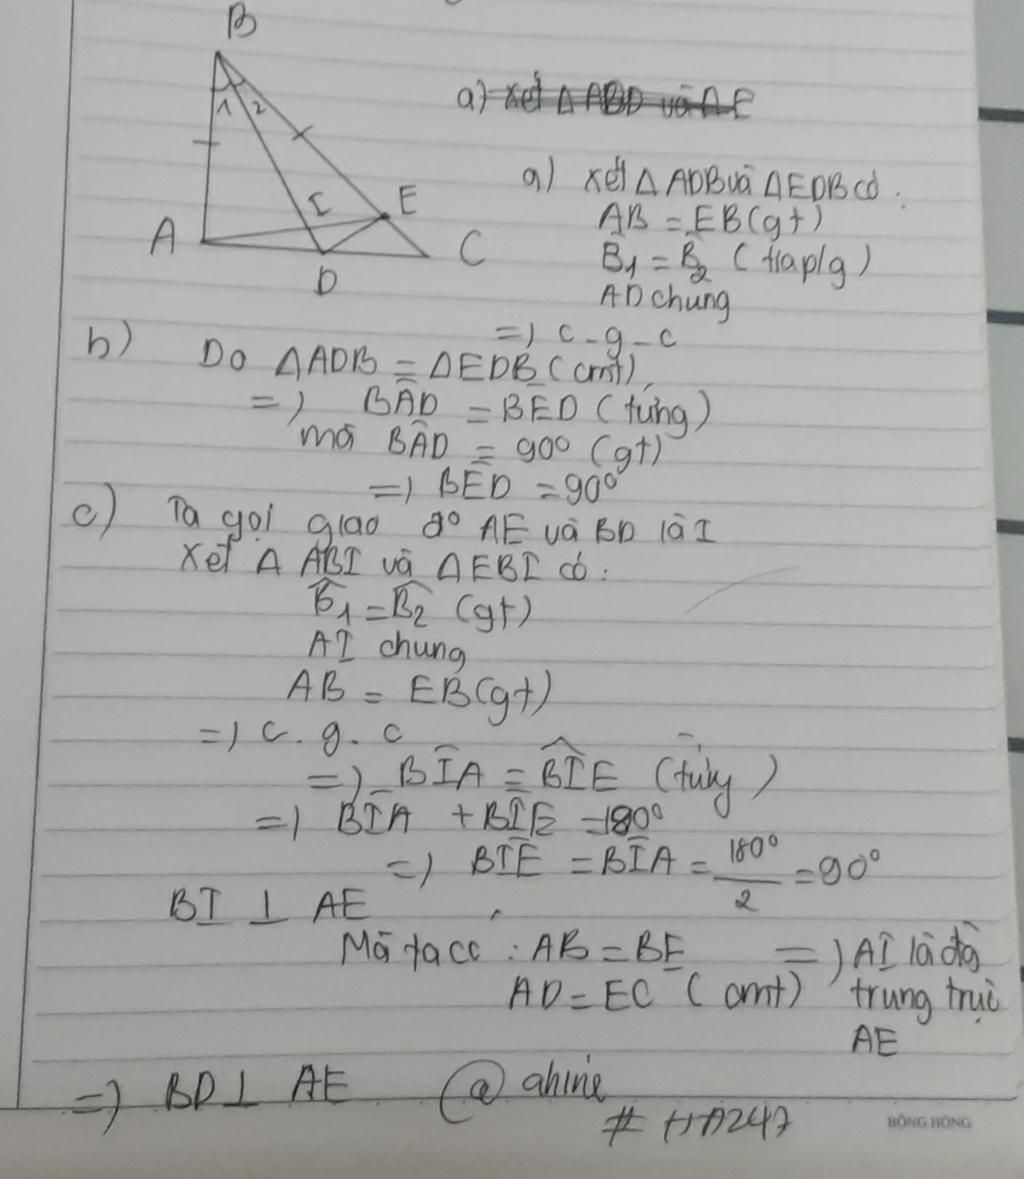 B
a) xét Δ ABD và ΔE
1 2
a) xét Δ ADB và ΔEDB có :
I E
AB = EB (gt)
A C
B̂1 = B̂2 (tia p/g)
D
AD chung
=) c-g-c
b) Do ΔADB = ΔEDB (cmt)
=) BÂD = BÊD (tứng)
mà BÂD = 90° (gt)
=) BÊD = 90°
c) Ta gọi giao đ° AE và BD là I
Xét Δ ABI và ΔEBI có:
B̂1 = B̂2 (gt)
AI chung
AB = EB (gt)
=) c.g.c
=) BÎA = BÎE (tứng)
=) BÎA + BÎE = 180°
=) BIÊ = BÎA = 180°/2 = 90°
BI ⊥ AE
Mà ta có : AB = BE =) AI là đg
AD = EC (cmt) trung trực
AE
=) BD ⊥ AE @ ahine
BÔNG HỒNG